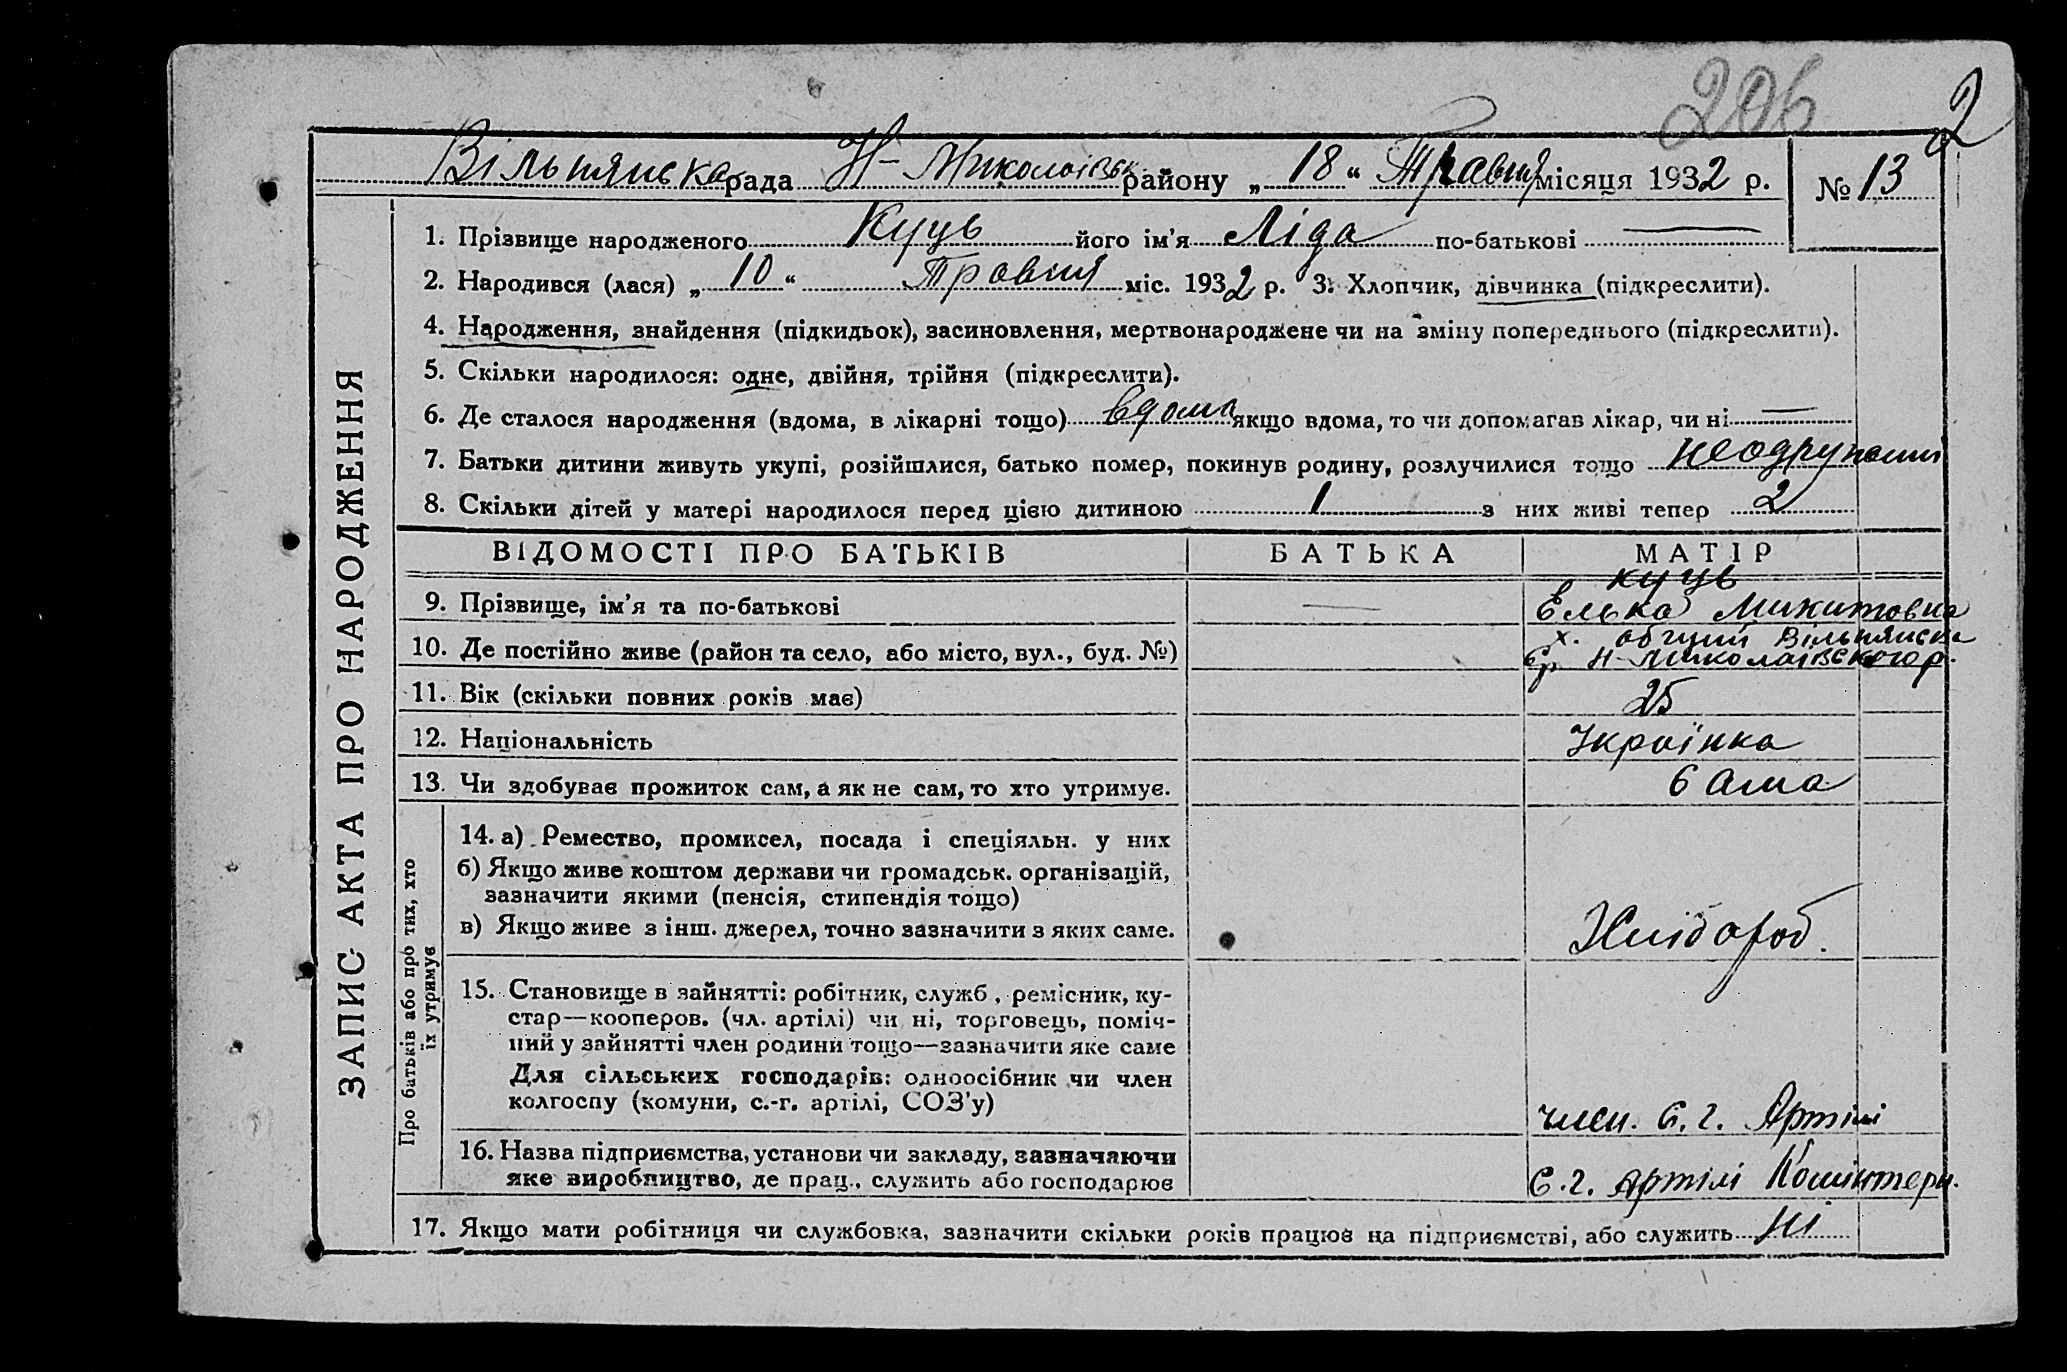 206 2
Вільнянска рада Н-Миколаівськ району „ 18 “ Травня місяця 1932 р. № 13
1. Прізвище народженого Куць його ім’я Ліда по-батькові —
2. Народився (лася) „ 10 “ Травня міс. 1932 р. 3. Хлопчик, дівчинка (підкреслити).
4. Народження, знайдення (підкидьок), засиновлення, мертвонароджене чи на зміну попереднього (підкреслити).
5. Скільки народилося: одне, двійня, трійня (підкреслити).
6. Де сталося народження (вдома, в лікарні тощо) вдома якщо вдома, то чи допомагав лікар, чи ні —
7. Батьки дитини живуть укупі, розійшлися, батько помер, покинув родину, розлучилися тощо
8. Скільки дітей у матері народилося перед цією дитиною 1 з них живі тепер 2
ВІДОМОСТІ ПРО БАТЬКІВ БАТЬКА МАТІР
Куць
9. Прізвище, ім’я та по-батькові — Елька Микитовна
х. Вільнянска
10. Де постійно живе (район та село, або місто, вул., буд. №)
с/р Н-Миколаівского р.
11. Вік (скільки повних років має) 25
12. Національність Українка
13. Чи здобуває прожиток сам, а як не сам, то хто утримує. сама
14. а) Ремество, промисел, посада і спеціяльн. у них
б) Якщо живе коштом держави чи громадськ. організацій,
зазначити якими (пенсія, стипендія тощо)
в) Якщо живе з інш. джерел, точно зазначити з яких саме. Хлібороб.
15. Становище в зайнятті: робітник, служб., ремісник, ку-
стар—кооперов. (чл. артілі) чи ні, торговець, поміч-
ний у зайнятті член родини тощо—зазначити яке саме
Для сільських господарів: одноосібник чи член
колгоспу (комуни, с.-г. артілі, СОЗ’у) член. С. г. Артілі
16. Назва підприємства, установи чи закладу, зазначаючи
яке виробництво, де прац., служить або господарює С.г. Артілі Комінтерн.
17. Якщо мати робітниця чи службовка, зазначити скільки років працює на підприємстві, або служить Ні
ЗАПИС АКТА ПРО НАРОДЖЕННЯ
Про батьків або про тих, хто
їх утримує